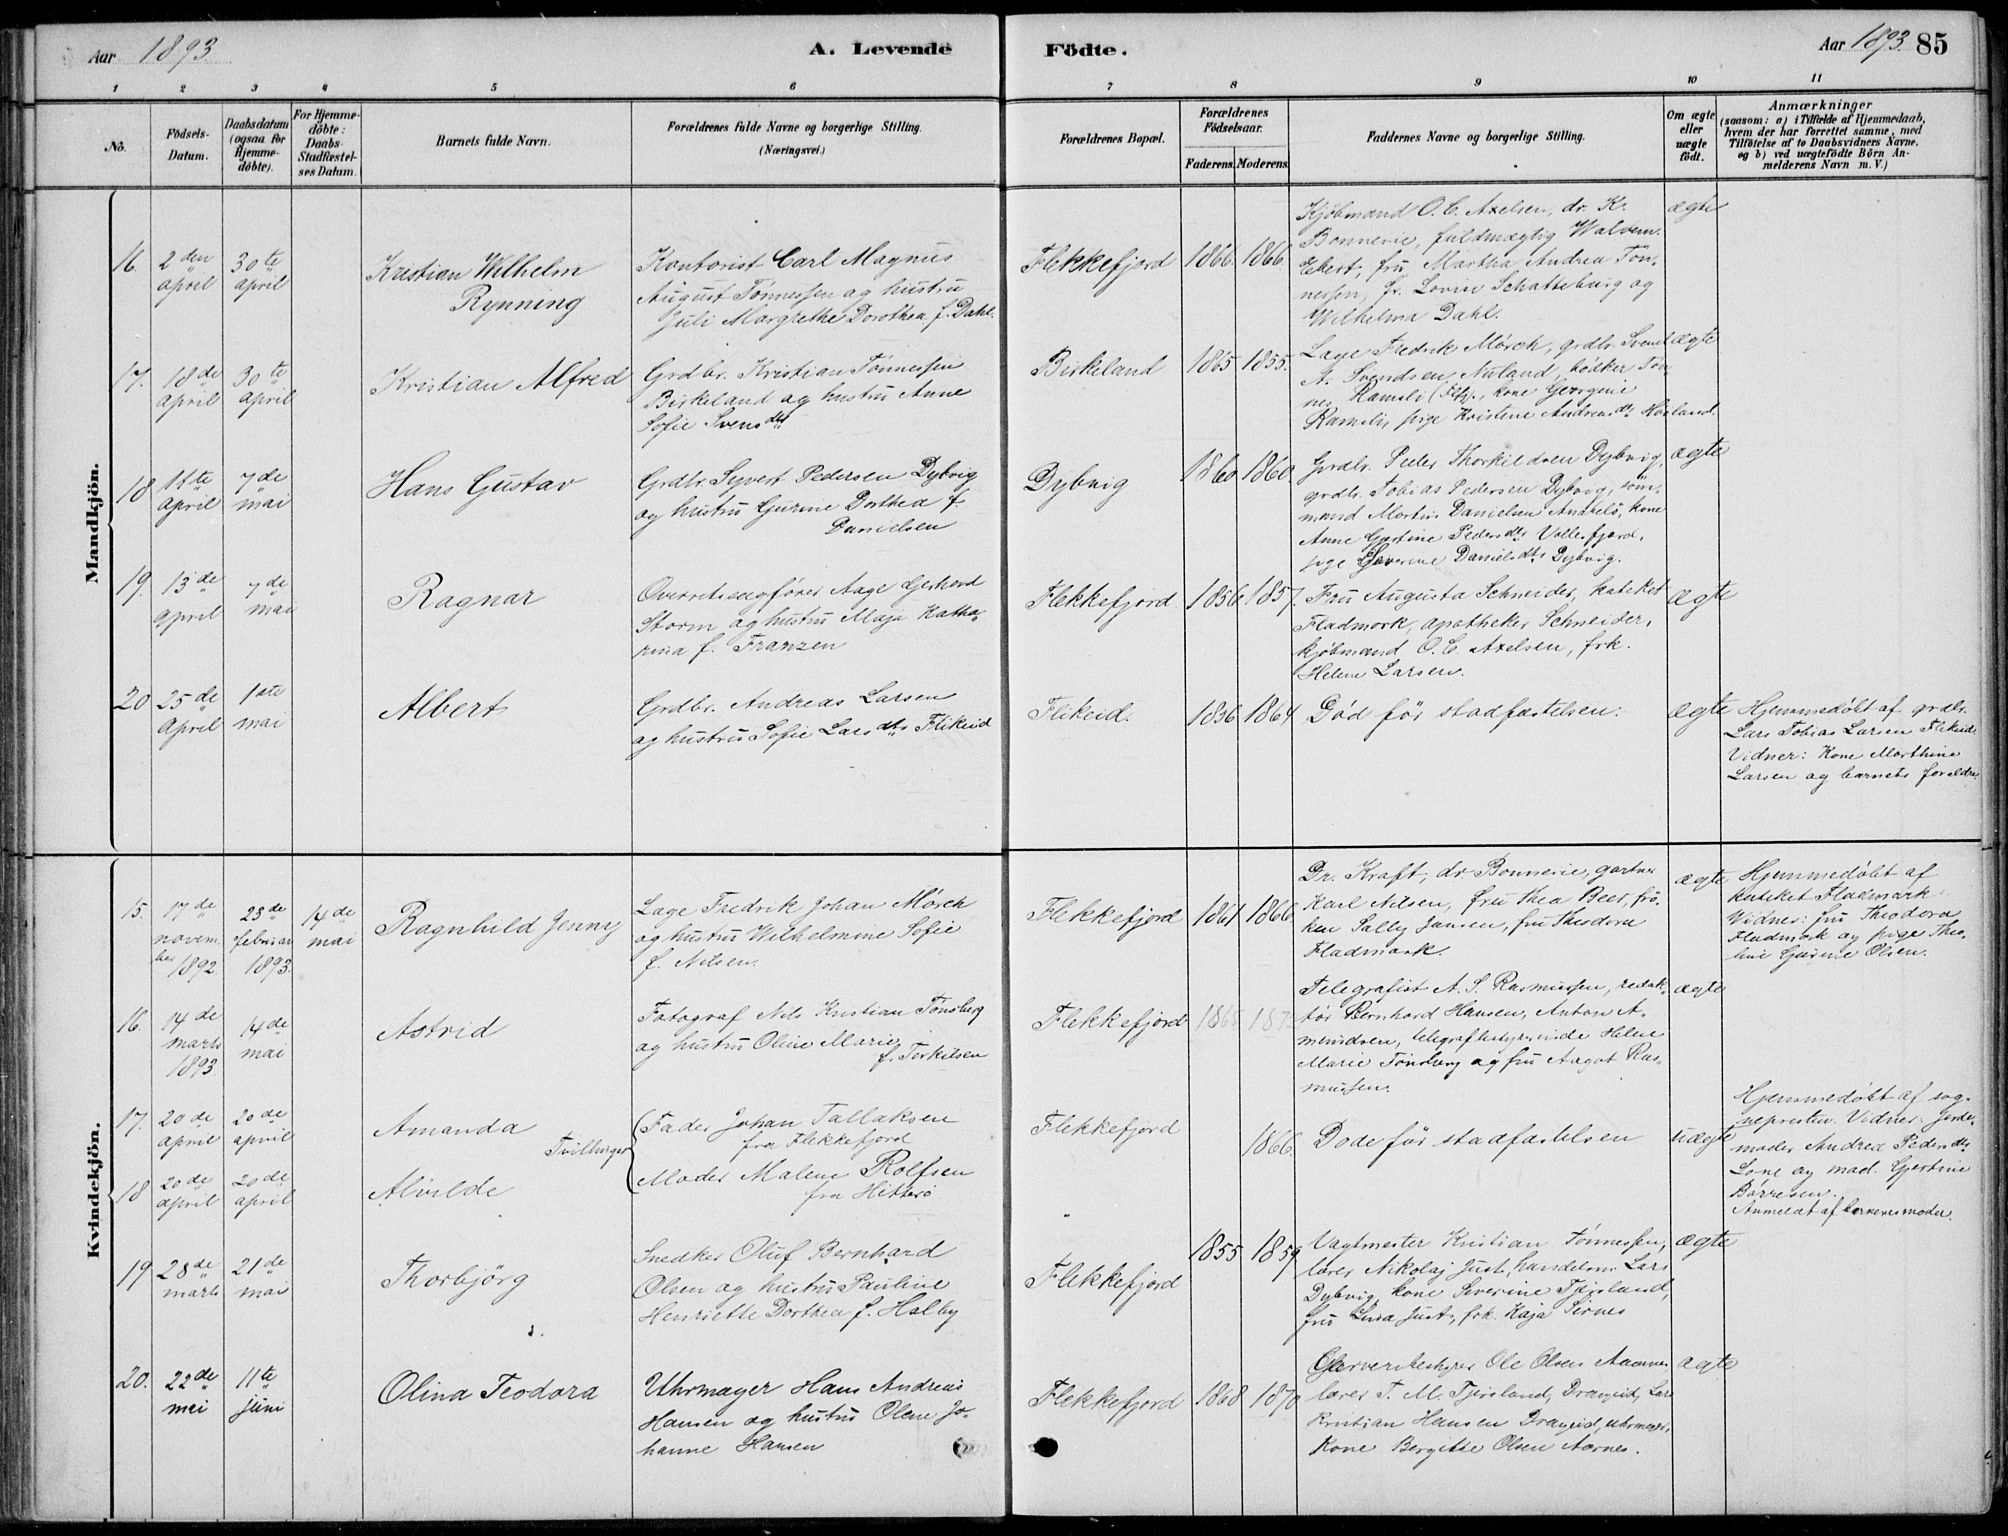 Aar 1893
A. Levende Födte.
Aar 1893. 85
1 2 3 4 5 6 7 8 9 10 11
No.
Födsels-
Datum.
Daabsdatum
(ogsaa for
Hjemme-
döbte).
For Hjemme-
döbte:
Daabs-
Stadfæstel-
ses Datum.
Barnets fulde Navn.
Forældrenes fulde Navne og borgerlige Stilling.
(Næringsvei.)
Forældrenes Bopæl.
Forældrenes
Födselsaar.
Faderens. Moderens.
Faddernes Navne og borgerlige Stilling.
Om ægte
eller
uægte
födt.
Anmærkninger
(saasom: a) i Tilfælde af Hjemmedaab,
hvem der har forrettet samme, med
Tilföielse af to Daabsvidners Navne,
og b) ved uægtefödte Börn An-
melderens Navn m. V.)
Mandkjön.
16. 2den april
30te april
Kristian Wilhelm
Rynning
Kontorist Carl Magnus
August Tønnessen og hustru
Juli Margrethe Dorothea f. Dahl.
Flekkefjord 1866. 1866.
Kjøbmand O. C. Axelsen, dr. K.
Bonnevie, fuldmægtig Walvem.
Ebert, fru Martha Andrea Tøn-
nessen, fr. Lovin Schatteburg og
Wilhelma Dahl.
ægte
17. 18de april
30te april
Kristian Alfred
Grdbr. Kristian Tønnessen
Birkeland og hustru Anne
Sofie Svensdtr
Birkeland 1865 1855.
Lage Fredrik Mörch, grdbr. Svend
A. Svendsen Auland, bøkker Tøn-
nes Ramsli (Flfj.), kone Georgine
Ramsli, pige Kristine Andreasdtr Hauland.
ægte
18 11te april
7de mai
Hans Gustav
Grdbr. Syvert Pedersen Dybvig
og hustru Gurine Dorthea f.
Danielsen
Dybvig 1860 1860.
Grdbr. Peder Thorkildsen Dybvig,
grdbr. Tobias Pedersen Dybvig, søm-
mand Martin Danielsen Anabelø, kone
Anne Gjertine Pedersdtr Vollesfjord,
pige Severine Danielsdtr Dybvig.
ægte
19. 13de april
7de mai
Ragnar
Overretssagfører Aage Gerhard
Storm og hustru Maja Katha-
rina f. Franzen
Flekkefjord 1856. 1857.
Fru Augusta Schneider, kateket
Fladmark, apotheker Schneider,
kjøbmand O. C. Axelsen, frk.
Helene Larsen.
ægte
20 25de April
1ste mai
Albert
Grdbr. Andreas Larsen
og hustru Sofie Larsdtr Flikeid
Flikeid. 1836 1864
Død før stadfæstelsen.
ægte
Hjemmedøbt af grdbr.
Lars Tobias Larsen Flikeid
Vidner: Kone Marthine
Larsen og barnets foreldre.
Kvindekjön.
15. 17de novem-
ber 1892
23de februar 1893.
14de mai
Ragnhild Jenny
Lage Fredrik Johan Mörch
og hustru Wilhelmine Sofie
f. Nilsen.
Flekkefjord 1861 1866
Dr. Kraft, dr. Bonnevie, gartner
Karl Nilsen, fru Thea Beer, frø-
ken Sally Jansen, fru Theodora
Fladmark.
ægte
Hjemmedøbt af
kateket Fladmark
Vidner: fru Theodora
Fladmark og pige Theo-
line Gurine Olsen.
16. 14de marts 1893
14de mai
Astrid
Fotograf Nils Kristian Tønsberg
og hustru Oline Marie
f. Terkilsen
Flekkefjord 1865
Telegrafist A. S. Rasmussen, redak-
tør Bernhard Hansen, Anton A-
mundsen, telegrafbestyrerinde Helene
Marie Tønsberg og fru Aagot Ras-
mussen.
ægte
17. 20de april
20de april
Amanda
Tvillinger
Fader Johan Tallaksen
fra Flekkefjord
Moder Malene Rolfsen
fra Hitterø
Flekkefjord
1866.
Døde før stadfæstelsen
uægte
Hjemmedøbt af sog-
nepresten. Vidner: Jorde-
moder Andrea Pedersdtr
Lone og mad. Gjertine
Børresen.
Anmeldt af barnenes moder.
18 20de april
20de april
Alvilde
19 28de marts
21de mai
Thorbjörg
Snedker Oluf Bernhard
Olsen og hustru Pauline
Henriette Dorthea f. Holby
Flekkefjord 1855 1859
Vagtmester Kristian Tønnessen,
lærer Nikolaj Just, handelsm. Lars
Dybvig, kone Severine Tjersland,
fru Lina Just, frk. Kaja Sirnes
ægte
20. 22de mei
11te juni
Olina Teodora
Uhrmager Hans Andreas
Hansen og hustru Olene Jo-
hanne Hansen
Flekkefjord 1868 1870
Garveribestyrer Ole Olsen Aarnes
lærer T. M. Tjersland, Drageid, Lars
Kristian Hansen Drageid, uhrmager,
Kone Bergitte Olsen Aarnes.
ægte